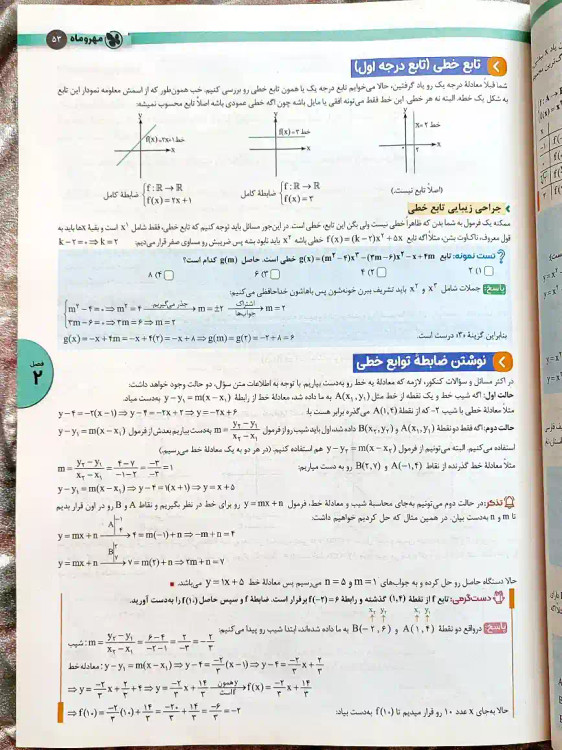 مهروماه ۵۳
تابع خطی (تابع درجه اول)
شما قبلاً معادلهٔ درجه یک رو یاد گرفتین، حالا می‌خوایم تابع درجه یک یا همون تابع خطی رو بررسی کنیم. خب همون‌طور که از اسمش معلومه نمودار این تابع
به شکل یک خطه. البته نه هر خطی این خط فقط می‌تونه افقی یا مایل باشه چون اگه خطی عمودی باشه اصلاً تابع محسوب نمیشه:
y y y
f(x)=۲x+۱ خط f(x)=۳ خط x=۲ خط
x x ۲ x
ضابطهٔ کامل {f:ℝ→ℝ f(x)=۲x+۱ ضابطهٔ کامل {f:ℝ→ℝ f(x)=۳ (اصلاً تابع نیست.)
جراحی زیبایی تابع خطی
ممکنه یک فرمول به شما بدن که ظاهراً خطی نیست ولی بگن این تابع، خطی است. در این‌جور مسائل باید توجه کنیم که تابع خطی، فقط شامل x¹ است و بقیهٔ xها باید به
قول معروف، ناک‌اوت بشن، مثلاً اگه تابع f(x)=(k−۲)x²+۵x خطی باشه x² باید نابود بشه پس ضریبش رو مساوی صفر قرار می‌دیم: k−۲=۰⇒k=۲
تست نمونه: تابع g(x)=(m²−۴)x³−(۳m−۶)x²−x+۴m خطی است. حاصل g(m) کدام است؟
۱) ۲ ۲) ۴ ۳) ۶ ۴) ۸
پاسخ: جملات شامل x³ و x² باید تشریف ببرن خونه‌شون پس باهاشون خداحافظی می‌کنیم:
{m²−۴=۰⇒m²=۴ جذر می‌گیریم → m=±۲ اشتراک جواب‌ها → m=۲
۳m−۶=۰⇒۳m=۶⇒m=۲
بنابراین گزینهٔ «۳» درست است. g(x)=−x+۴m=−x+۴(۲)=−x+۸⇒g(m)=g(۲)=−۲+۸=۶
نوشتن ضابطهٔ توابع خطی
در اکثر مسائل و سؤالات کنکور، لازمه که معادلهٔ یه خط رو به‌دست بیاریم. با توجه به اطلاعات متن سؤال، دو حالت وجود خواهد داشت:
حالت اول: اگه شیب خط و یک نقطه از خط مثل A(x₁,y₁) به ما داده شود، معادلهٔ خط از رابطهٔ y−y₁=m(x−x₁) به‌دست میاد.
مثلاً معادلهٔ خطی با شیب ۲− که از نقطهٔ A(۱,۴) می‌گذره برابر هست با y−۴=−۲(x−۱)⇒y−۴=−۲x+۲⇒y=−۲x+۶
حالت دوم: اگه فقط دو نقطهٔ A(x₁,y₁) و B(x₂,y₂) داده شد، اول باید شیب رو از فرمول m=(y₂−y₁)/(x₂−x₁) به‌دست بیاریم بعدش از فرمول y−y₁=m(x−x₁)
استفاده می‌کنیم. البته می‌تونیم از فرمول y−y₂=m(x−x₂) هم استفاده کنیم. (در هر دو به یک معادلهٔ خط می‌رسیم.)
مثلاً معادلهٔ خط گذرنده از نقاط A(−۱,۴) و B(۲,۷) رو به دست میاریم: m=(y₂−y₁)/(x₂−x₁)=(۴−۷)/(−۱−۲)=−۳/−۳=۱
y−y₁=m(x−x₁)⇒y−۴=۱(x+۱)⇒y=x+۵
تذکر: در حالت دوم می‌تونیم به‌جای محاسبهٔ شیب و معادلهٔ خط، فرمول y=mx+n رو برای خط در نظر بگیریم و نقاط A و B رو در اون قرار بدیم
تا m و n به‌دست بیان. در همین مثال که حل کردیم خواهیم داشت:
y=mx+n A|−۱ ۴ → ۴=m(−۱)+n⇒−m+n=۴
y=mx+n B|۲ ۷ → ۷=m(۲)+n⇒۲m+n=۷
حالا دستگاه حاصل رو حل کرده و به جواب‌های m=۱ و n=۵ می‌رسیم پس معادلهٔ خط y=۱x+۵ می‌باشد.
دست‌گرمی: تابع f از نقطهٔ (۱,۴) گذشته و رابطهٔ f(−۲)=۶ برقرار است. ضابطهٔ f و سپس حاصل f(۱۰) را به‌دست آورید.
x₂ y₂ x₁ y₁
پاسخ: درواقع دو نقطهٔ A(۱,۴) و B(−۲,۶) به ما داده شده‌اند، ابتدا شیب رو پیدا می‌کنیم: شیب: m=(y₂−y₁)/(x₂−x₁)=(۶−۴)/(−۲−۱)=۲/−۳=−۲/۳
معادلهٔ خط: y−y₁=m(x−x₁)⇒y−۴=−۲/۳(x−۱)⇒y−۴=−۲/۳x+۲/۳
⇒y=−۲/۳x+۲/۳+۴⇒y=−۲/۳x+۱۴/۳ y همون f است → f(x)=−۲/۳x+۱۴/۳
حالا به‌جای x عدد ۱۰ رو قرار میدیم تا f(۱۰) به‌دست بیاد: ⇒f(۱۰)=−۲/۳(۱۰)+۱۴/۳=−۲۰/۳+۱۴/۳=−۶/۳=−۲
فصل
۲